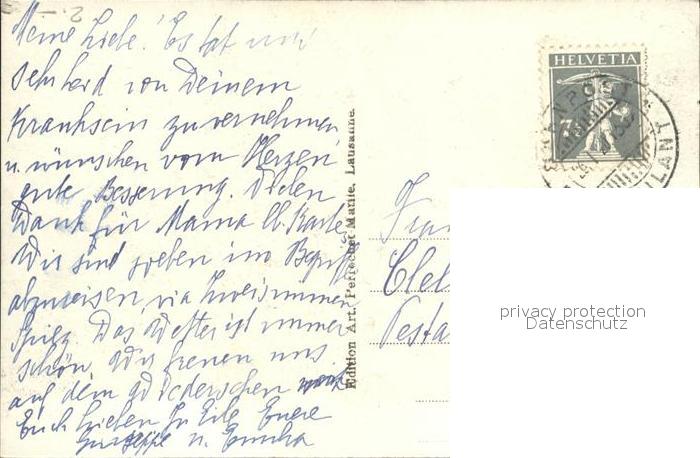 2.-
Meine Liebe! Es tut mir
sehr leid von Deinem
Kranksein zu vernehmen
u. wünschen vom Herzen
gute Besserung. Vielen
Dank für Mama lb. Karte
Wir sind soeben im Begriff
abzureisen, via Zweisimmen
Spiez. Das Wetter ist immer
schön, wir freuen uns
auf dem Wiedersehen
Euch Lieben In Eile Euere
Giuseppe u.
Edition Art. Perrochet Matile, Lausanne.
HELVETIA
Frau
Clel
Pesta
privacy protection
Datenschutz